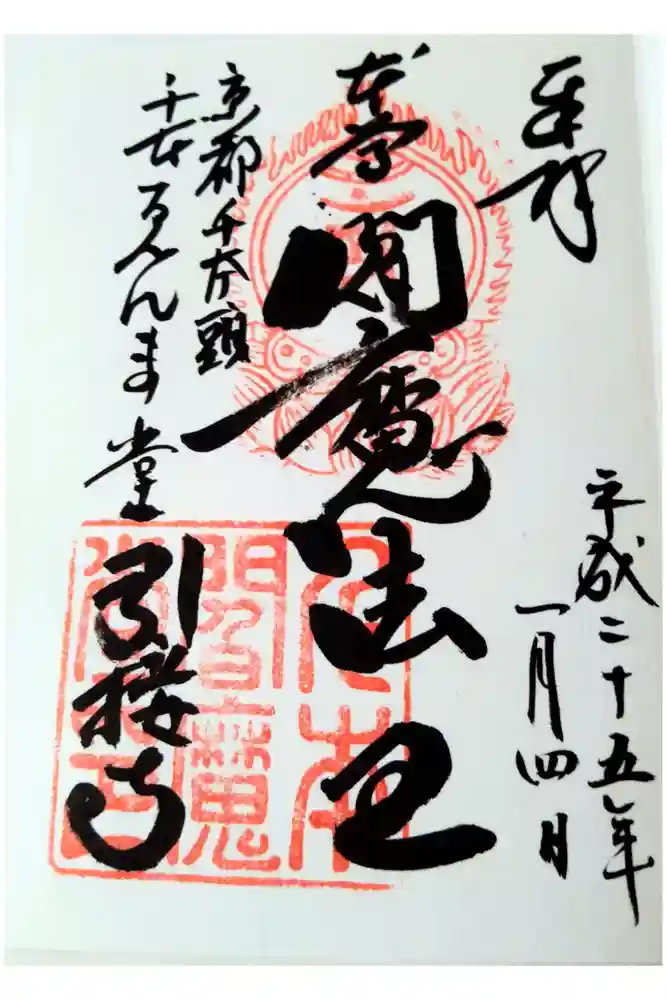 奉拝
平成二十五年
一月四日
本尊
閻魔法王
京都千本頭
千本ゑんま堂
引接寺
千本
閻魔